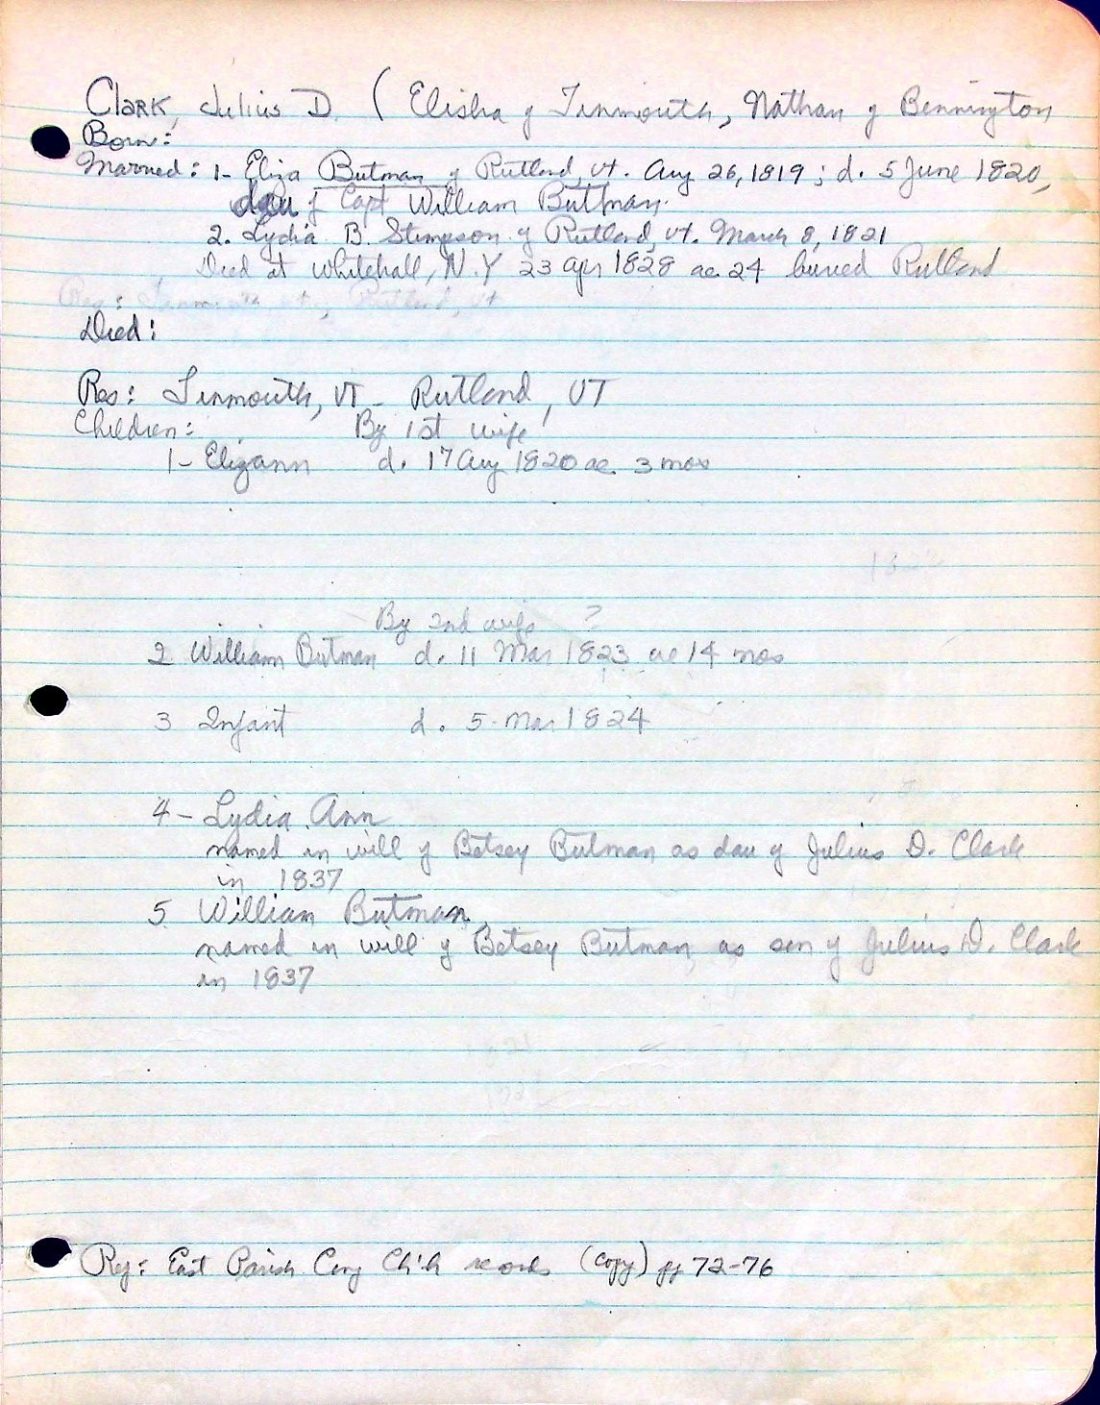 Clark, Julius D. ( Elisha of Tinmouth, Nathan of Bennington
Born:
Married: 1- Eliza Butman of Rutland, Vt. Aug 26, 1819; d. 5 June 1820,
dau of Capt William Buttman.
2. Lydia B. Stimpson of Rutland, Vt. March 8, 1821
Died at Whitehall, N.Y 23 Apr 1828 ae 24 buried Rutland
Res: Tinmouth, Vt., Rutland, Vt
Died:
Res: Tinmouth, VT - Rutland, VT
Children: By 1st wife
1- Elizann d. 17 Aug 1820 ae. 3 mos
By 2nd wife ?
2 William Butman d. 11 Mar 1823 ae 14 mos
3 Infant d. 5 Mar 1824
4 - Lydia Ann
named in will of Betsey Butman as dau of Julius D. Clark
in 1837
5 William Butman,
named in will of Betsey Butman as son of Julius D. Clark
in 1837
Ref: East Parish Cong Ch'h records (copy) pp 72-76